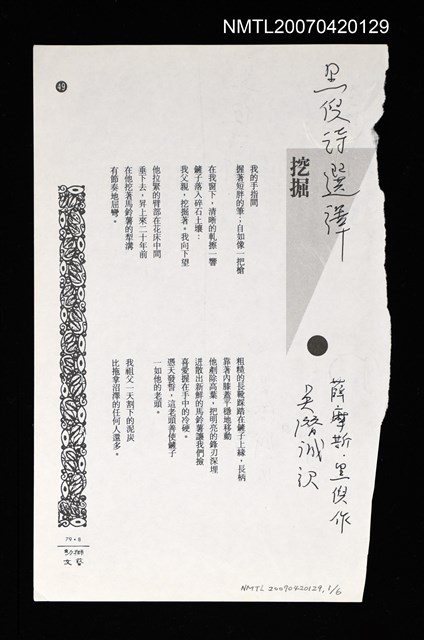 NMTL20070420129
黑倪詩選譯
挖掘
薛摩斯·黑倪作
吳潛誠訳
我的手指間
握著短胖的筆；自如像一把槍
在我窗下，清晰的軋擦一響
鏟子落入碎石土壤：
我父親，挖掘著。我向下望
他拉緊的臀部在花床中間
垂下去，昇上來二十年前
在他挖著馬鈴薯的犁溝
有節奏地屈彎。
粗糙的長靴踩踏在鏟子上緣，長柄
靠著內膝蓋平穩地移動
他剷除高葉，把明亮的鋒刃深埋
迸散出新鮮的馬鈴薯讓我們撿
喜愛握在手中的冷硬。
憑天發誓，這老頭善使鏟子
一如他的老頭。
我祖父一天割下的泥炭
比拖拿沼澤的任何人還多。
49
79·8
幼獅
文藝
NMTL 20070420129, 1/6